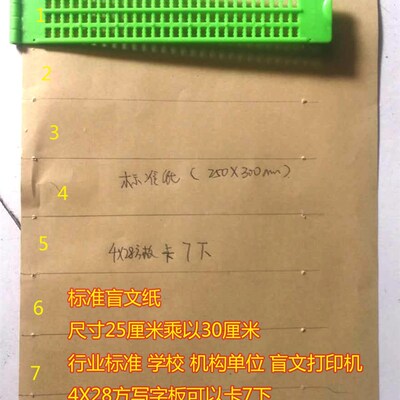 1
2
3
标准纸(250X300mm)
4
5
4X28方板卡7下
6
标准盲文纸
尺寸25厘米乘以30厘米
7
行业标准 学校 机构单位 盲文打印机
4X28方写字板可以卡7下